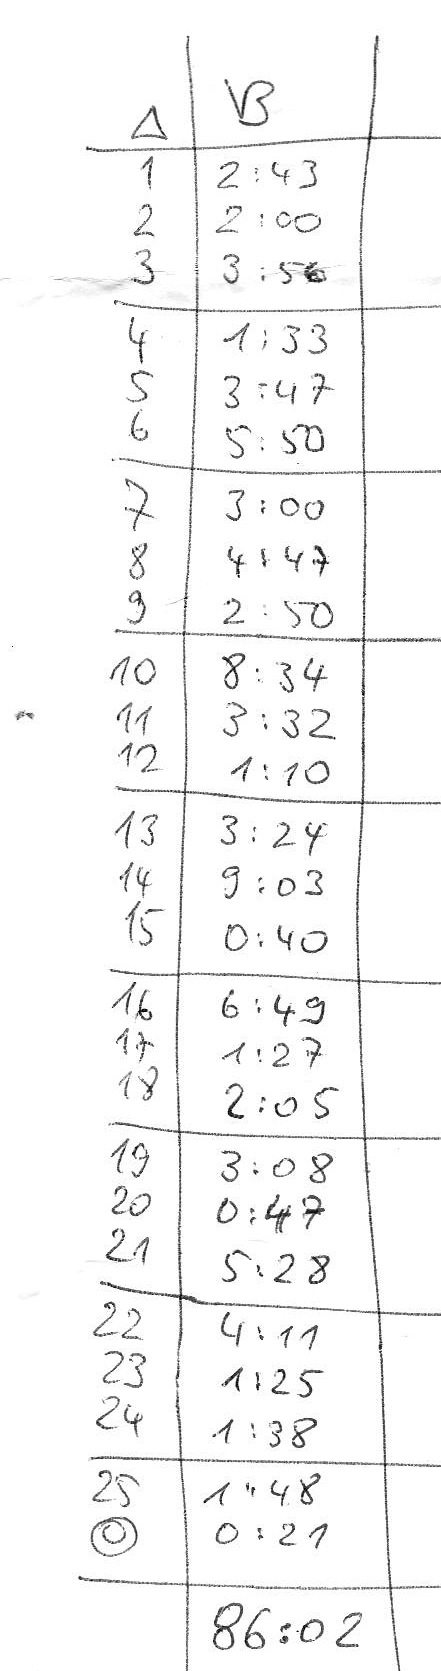 △ VB
1 2:43
2 2:00
3 3:56
4 1:33
5 3:47
6 5:50
7 3:00
8 4:47
9 2:50
10 8:34
11 3:32
12 1:10
13 3:24
14 9:03
15 0:40
16 6:49
17 1:27
18 2:05
19 3:08
20 0:47
21 5:28
22 4:11
23 1:25
24 1:38
25 1:48
◎ 0:21
86:02